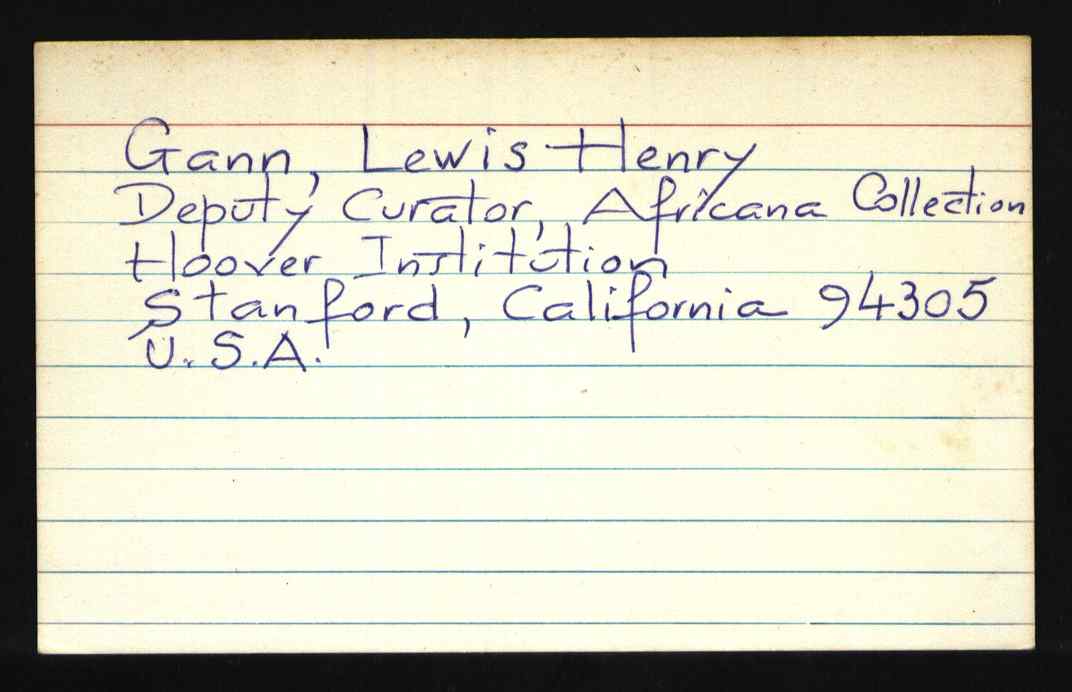 Gann, Lewis Henry
Deputy Curator, Africana Collection
Hoover Institution
Stanford, California 94305
U.S.A.